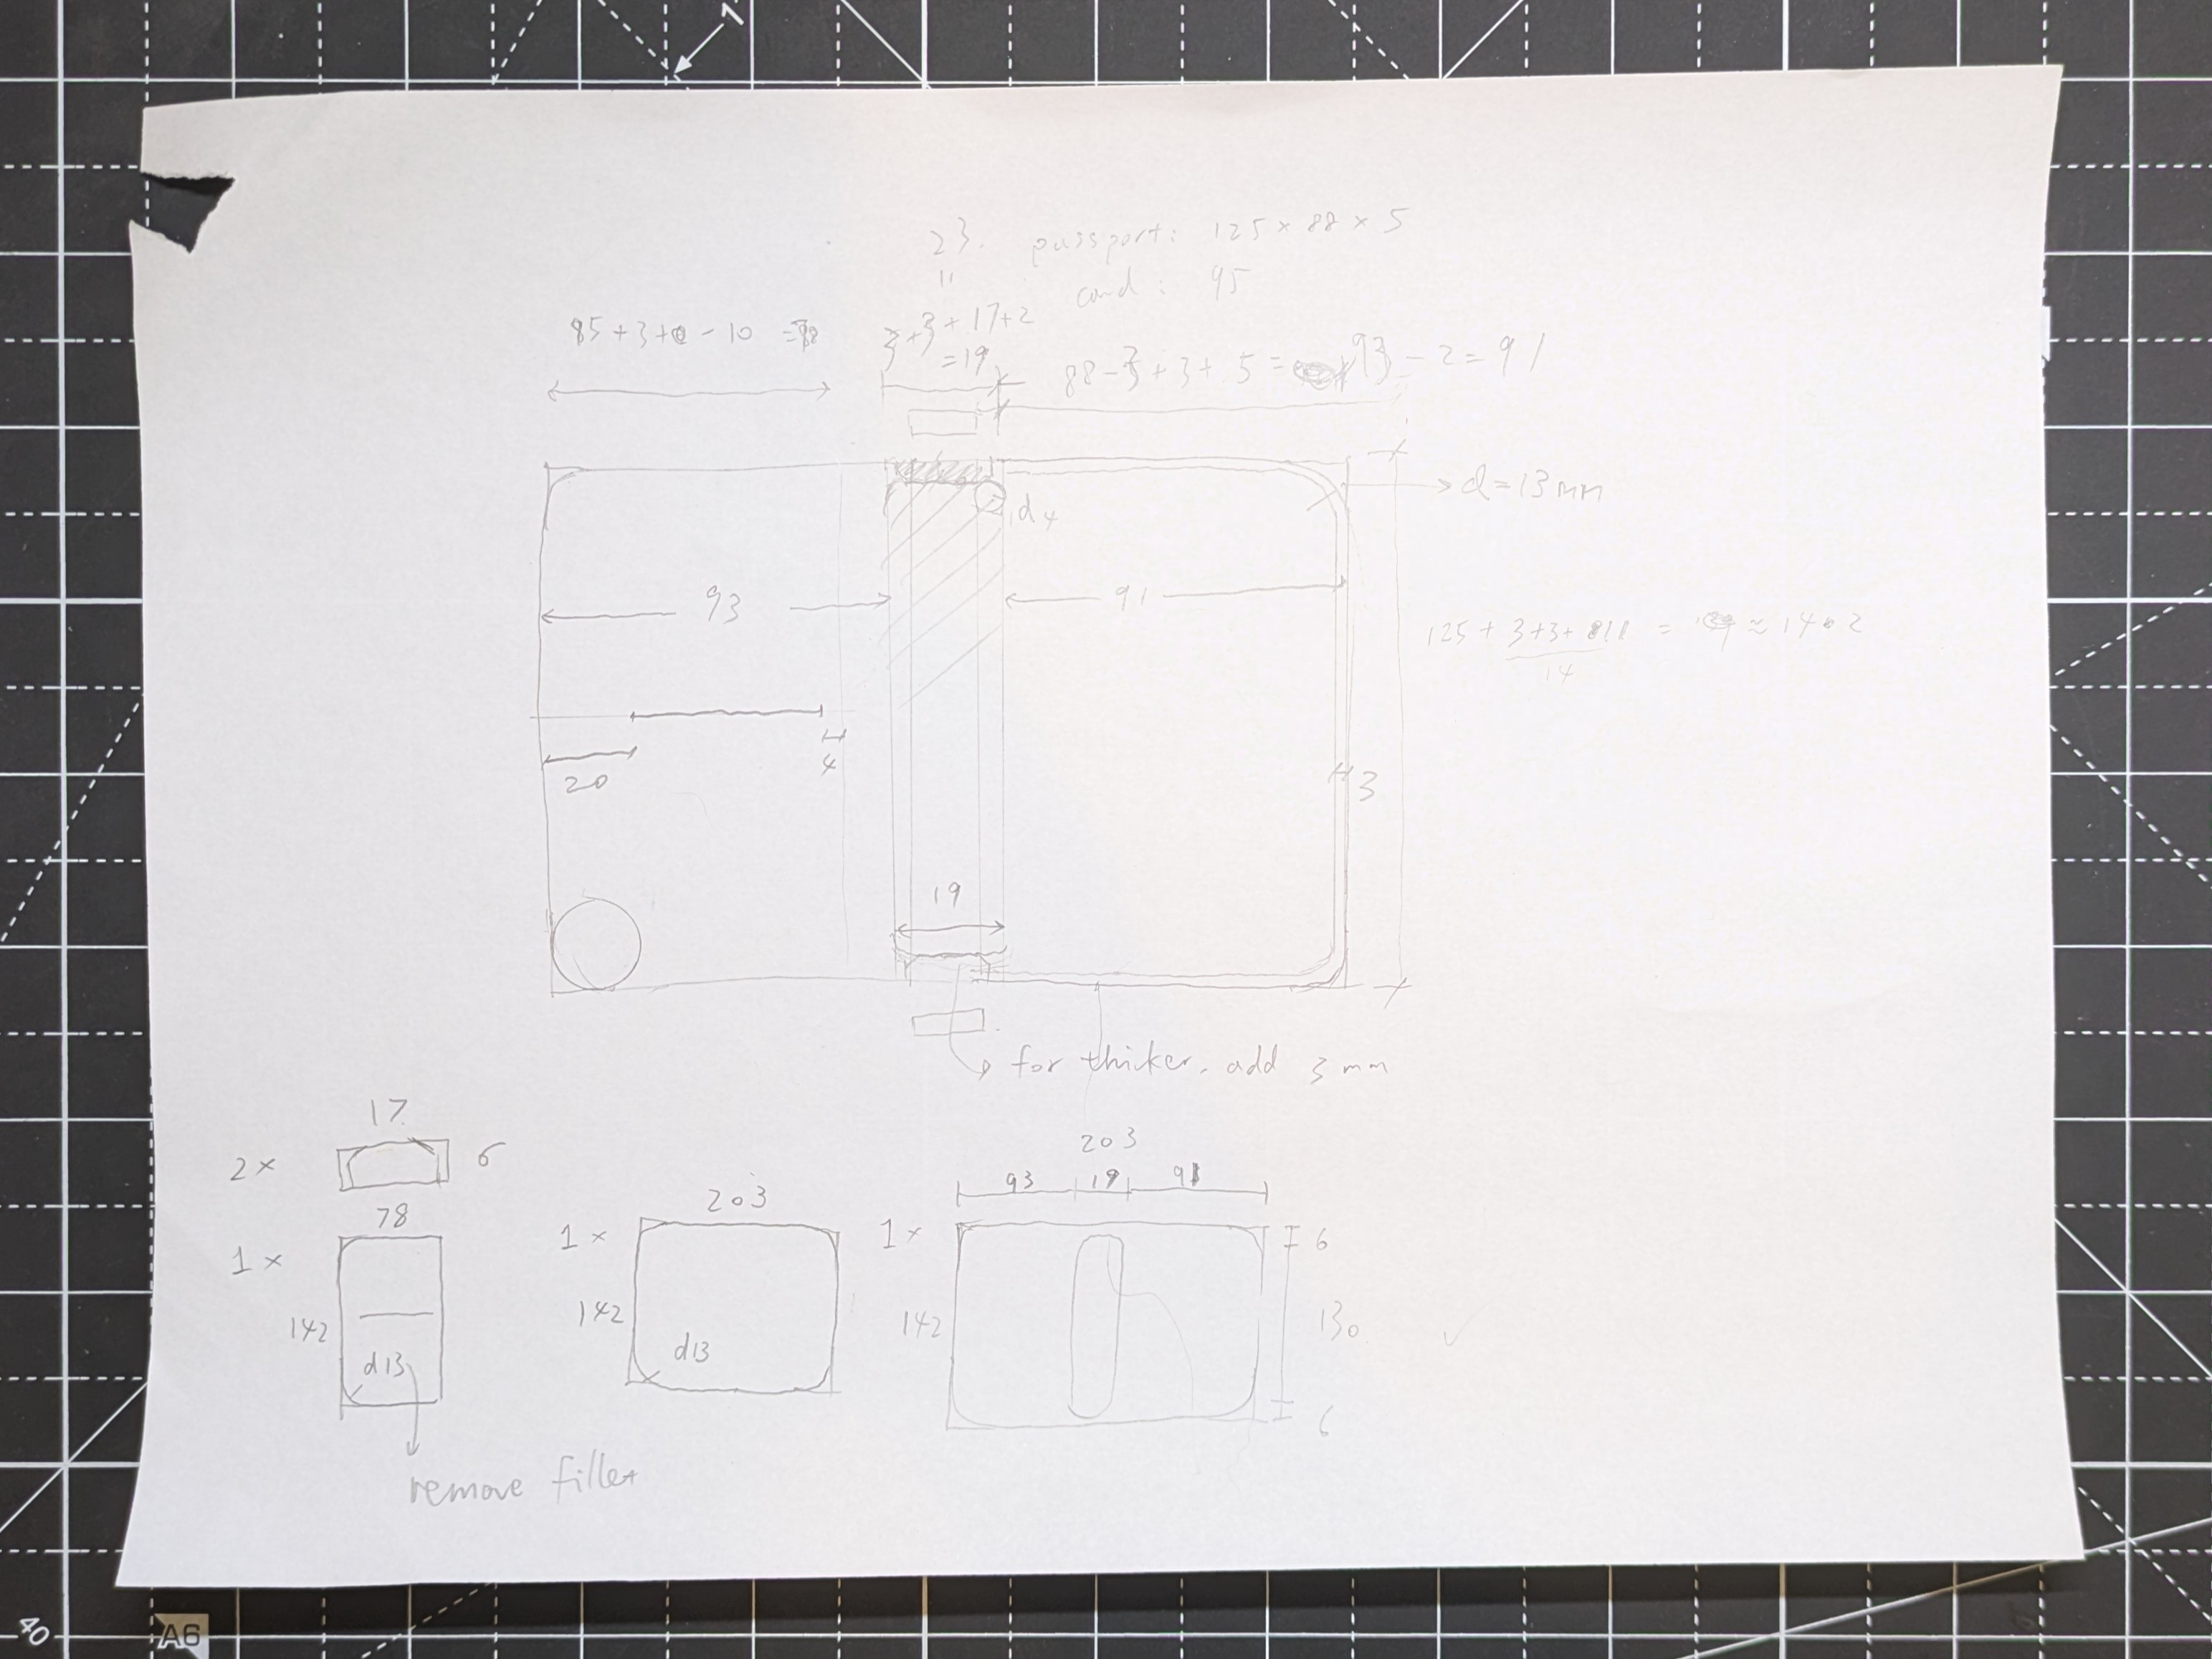 1
23. passport: 125 × 88 × 5
"
card : 95
85 + 3 + 0 - 10 = 78
3 + 3 + 17 + 2
= 19
88 - 3 + 3 + 5 = 93 - 2 = 91
d = 13 mm
d4
93
91
125 + 3 + 3 + 11 = ≈ 142
14
20
4
3
19
for thicker, add 3 mm
17
2 ×
6
78
1 ×
142
d13
remove fillet
203
1 ×
142
d13
203
93 19 91
1 ×
6
142
130
6
40
A6